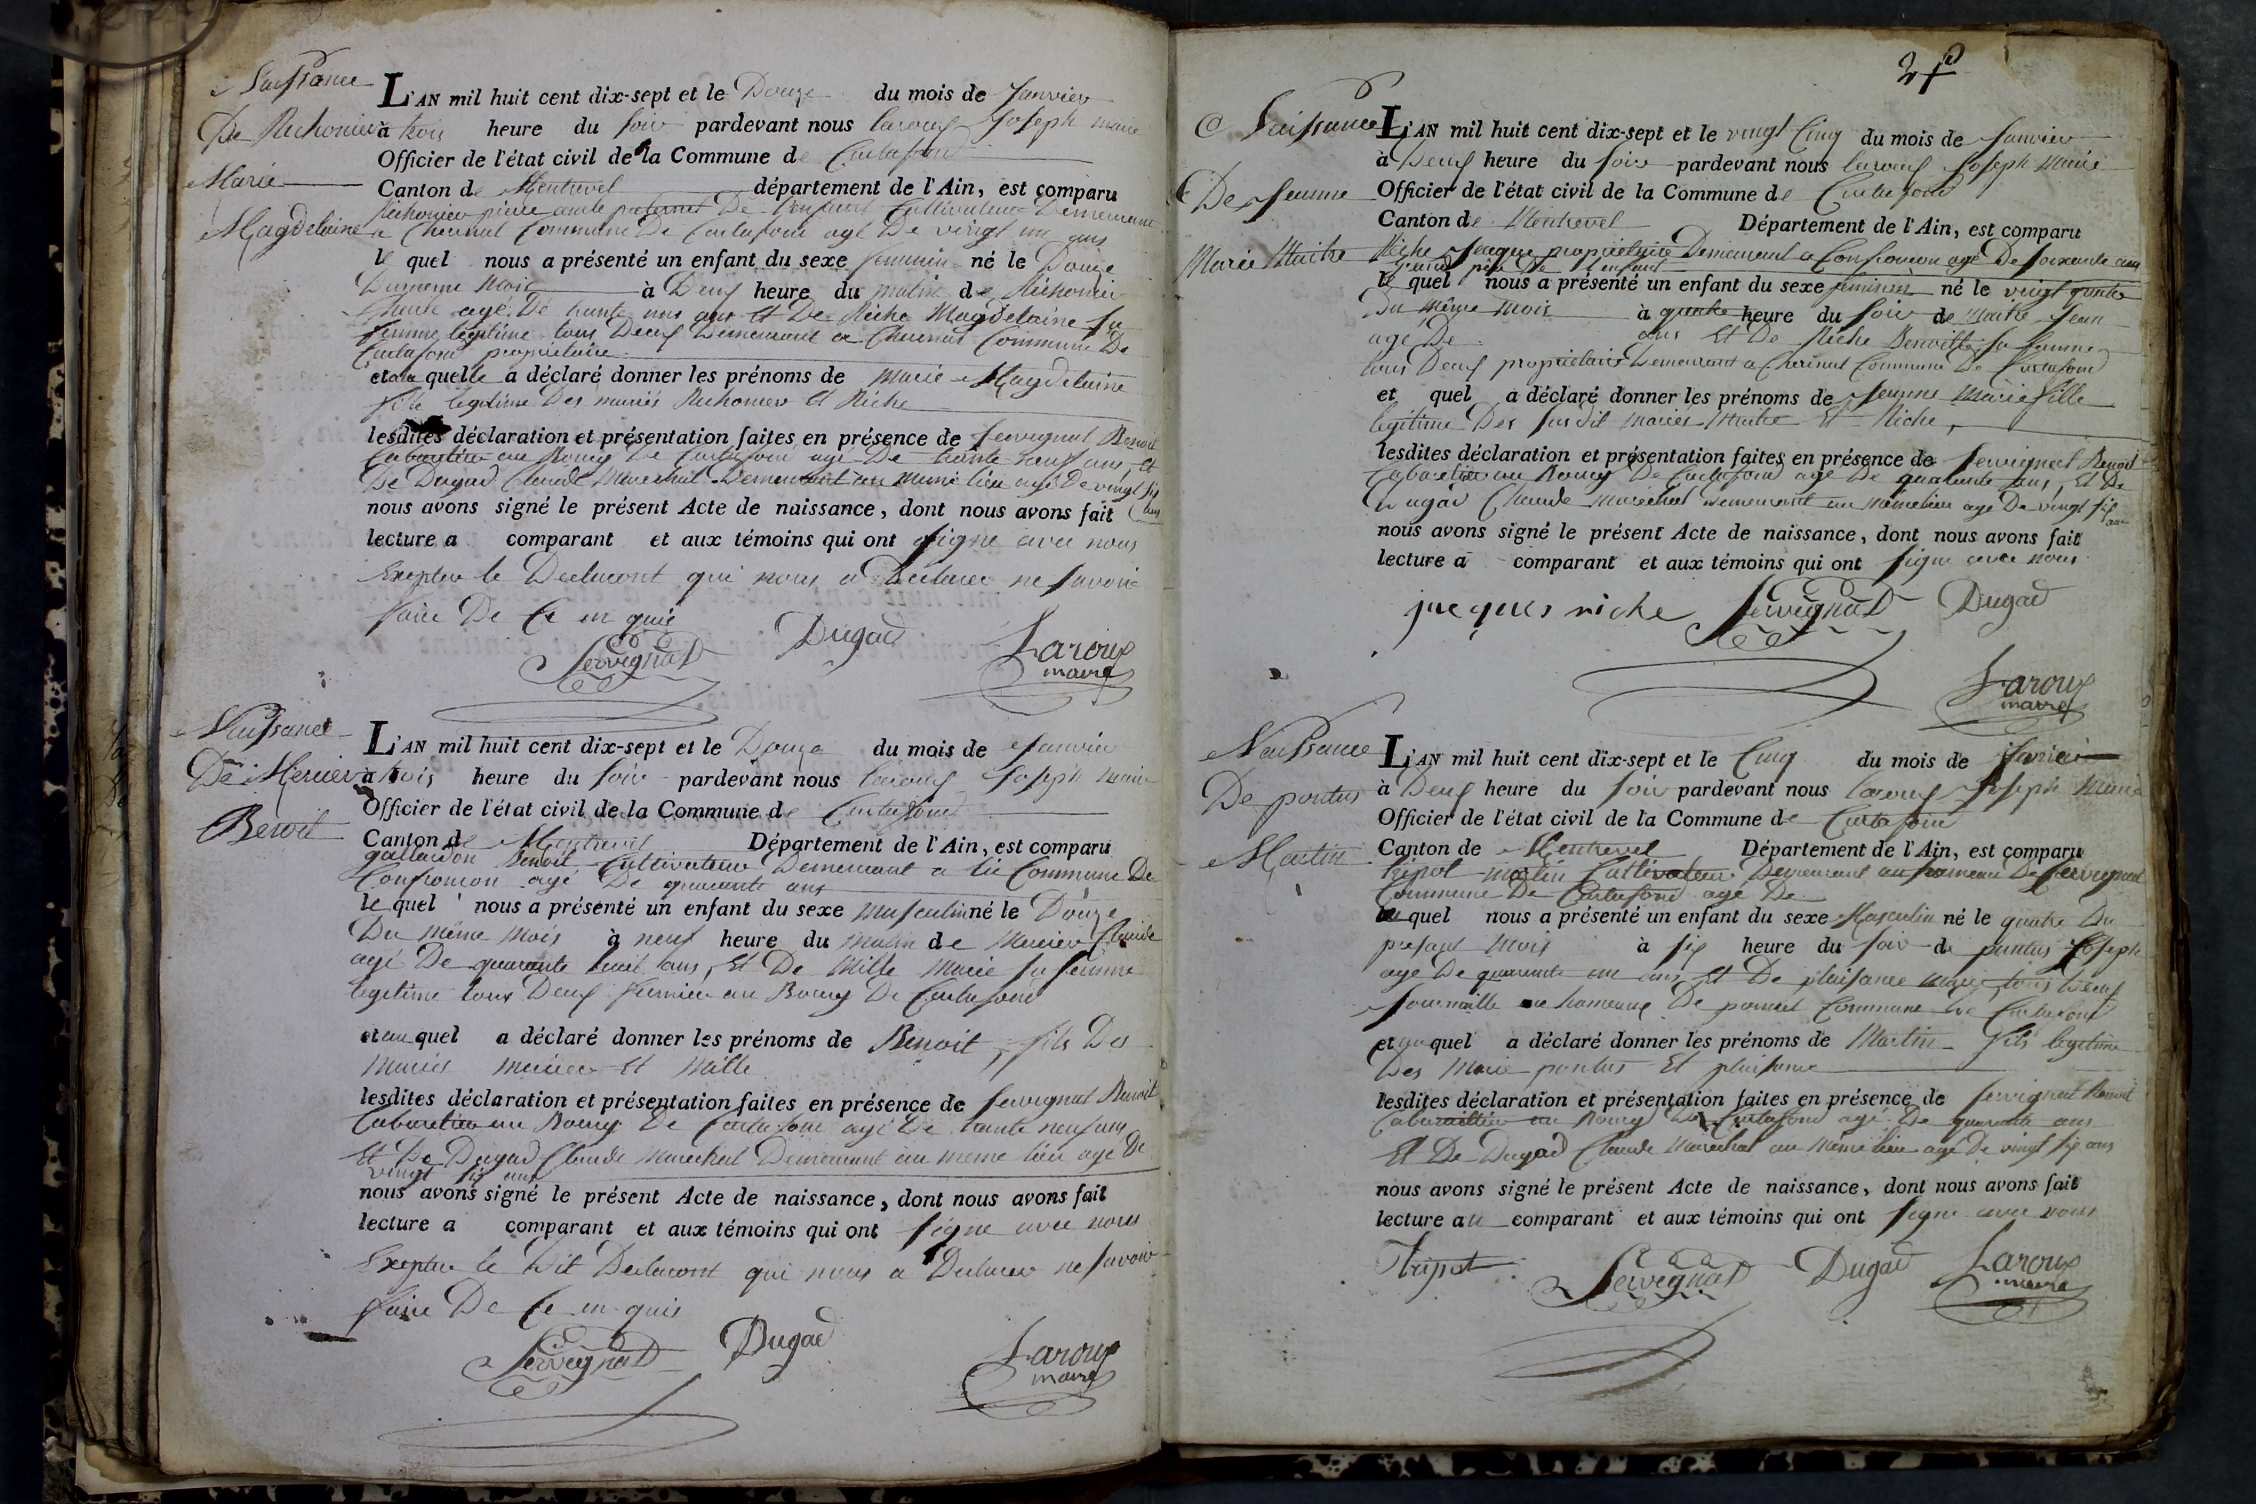 Naissance
De Richonier
Marie
Magdelaine
L'AN mil huit cent dix-sept et le Douze du mois de Janvier
à trois heure du soir pardevant nous laroux Joseph maire
Officier de l'état civil de la Commune de Curtafond
Canton de Montrevel département de l'Ain, est comparu
Richonier pierre oncle paternel De l'enfant Cultivateur Demeurant
a Charinal Commune De Curtafond agé De vingt un ans
le quel nous a présenté un enfant du sexe feminin né le Douze
Du meme Mois à Deux heure du matin de Richonier
agé De trente ans et De Riche Magdelaine sa
femme legitime tous Deux Demeurant a Commune De
Curtafond propriétaire
et au quelle a déclaré donner les prénoms de Marie Magdelaine
fille legitime Des mariés Richonier et Riche
lesdites déclaration et présentation faites en présence de Servignat Benoit
Cabaretier au Bourg De Curtafond agé De trente neuf ans, et
De Dugad Claude Marechal Demeurant au meme lieu agé De vingt six
ans
nous avons signé le présent Acte de naissance, dont nous avons fait
lecture a comparant et aux témoins qui ont signé avec nous
Excepter le Declarant qui nous a Declarer ne savoir
faire De Ce en quis
Servignat Dugad Laroux
maire
Naissance
De Mercier
Benoit
L'AN mil huit cent dix-sept et le Douze du mois de Janvier
à trois heure du soir pardevant nous laroux Joseph maire
Officier de l'état civil de la Commune de Curtafond
Canton de Montrevel Département de l'Ain, est comparu
gallardon Benoit Cultivateur Demeurant a Commune De
Confrancon agé De quarante ans
le quel nous a présenté un enfant du sexe masculin né le Douze
Du même Mois à neuf heure du matin de Mercier Claude
agé De quarante huit ans, Et De Mille Marie sa femme
legitime tous Deux fermier au Bourg De Curtafond
et au quel a déclaré donner les prénoms de Benoit, fils Des
Mariés mercier Et Mille
lesdites déclaration et présentation faites en présence de Servignat Benoit
Cabaretier au Bourg De Curtafond agé De trente neuf ans
Et De Dugad Claude Marechal Demeurant au meme lieu agé De
vingt six ans
nous avons signé le présent Acte de naissance, dont nous avons fait
lecture a comparant et aux témoins qui ont signé avec nous
Excepter le Dit Declarant qui nous a Declarer ne savoir
faire De Ce en quis
Servignat Dugad Laroux
maire
2
Naissance
De Jeanne
Marie Maitre
L'AN mil huit cent dix-sept et le vingt Cinq du mois de Janvier
à Deux heure du soir pardevant nous laroux Joseph Maire
Officier de l'état civil de la Commune de Curtafond
Canton de Montrevel Département de l'Ain, est comparu
Riche Jacque propriétaire Demeurant a Confrancon agé De soixante ans
grand père De l'enfant
le quel nous a présenté un enfant du sexe feminin né le vingt quatre
Du même mois à quatre heure du soir de Maitre Jean
agé De ans Et De Riche Benoitte sa femme
tous Deux propriétaire Demeurant a Charinal Commune De Curtafond
et quel a déclaré donner les prénoms de Jeanne Marie fille
legitime Des susdit mariés Maitre Et Riche,
lesdites déclaration et présentation faites en présence de Servignat Benoit
Cabaretier au Bourg De Curtafond agé De quarante ans, Et De
Dugad Claude marechal Demeurant au même lieu agé De vingt six
ans
nous avons signé le présent Acte de naissance, dont nous avons fait
lecture a comparant et aux témoins qui ont signé avec nous
jacques riche Servignat Dugad
Laroux
maire
Naissance
De pontus
Martin
L'AN mil huit cent dix-sept et le Cinq du mois de
à Deux heure du soir pardevant nous laroux Joseph Maire
Officier de l'état civil de la Commune de Curtafond
Canton de Montrevel Département de l'Ain, est comparu
tripot martin Cultivateur Demeurant au hameau De Servignat
Commune De Curtafond agé De
le quel nous a présenté un enfant du sexe Masculin né le quatre Du
présant Mois à six heure du soir de pontus Joseph
agé De quarante un ans Et De plaisance Marie, tous Deux
au hameaux De Commune De Curtafond
et au quel a déclaré donner les prénoms de Martin fils legitime
Des Marié pontus Et plaisance
lesdites déclaration et présentation faites en présence de Servignat Benoit
Cabarettier au Bourg De Curtafond agé De quarante ans
Et De Dugad Claude Marechal au même lieu agé De vingt six ans
nous avons signé le présent Acte de naissance, dont nous avons fait
lecture au comparant et aux témoins qui ont signé avec nous
Tripot Servignat Dugad Laroux
maire